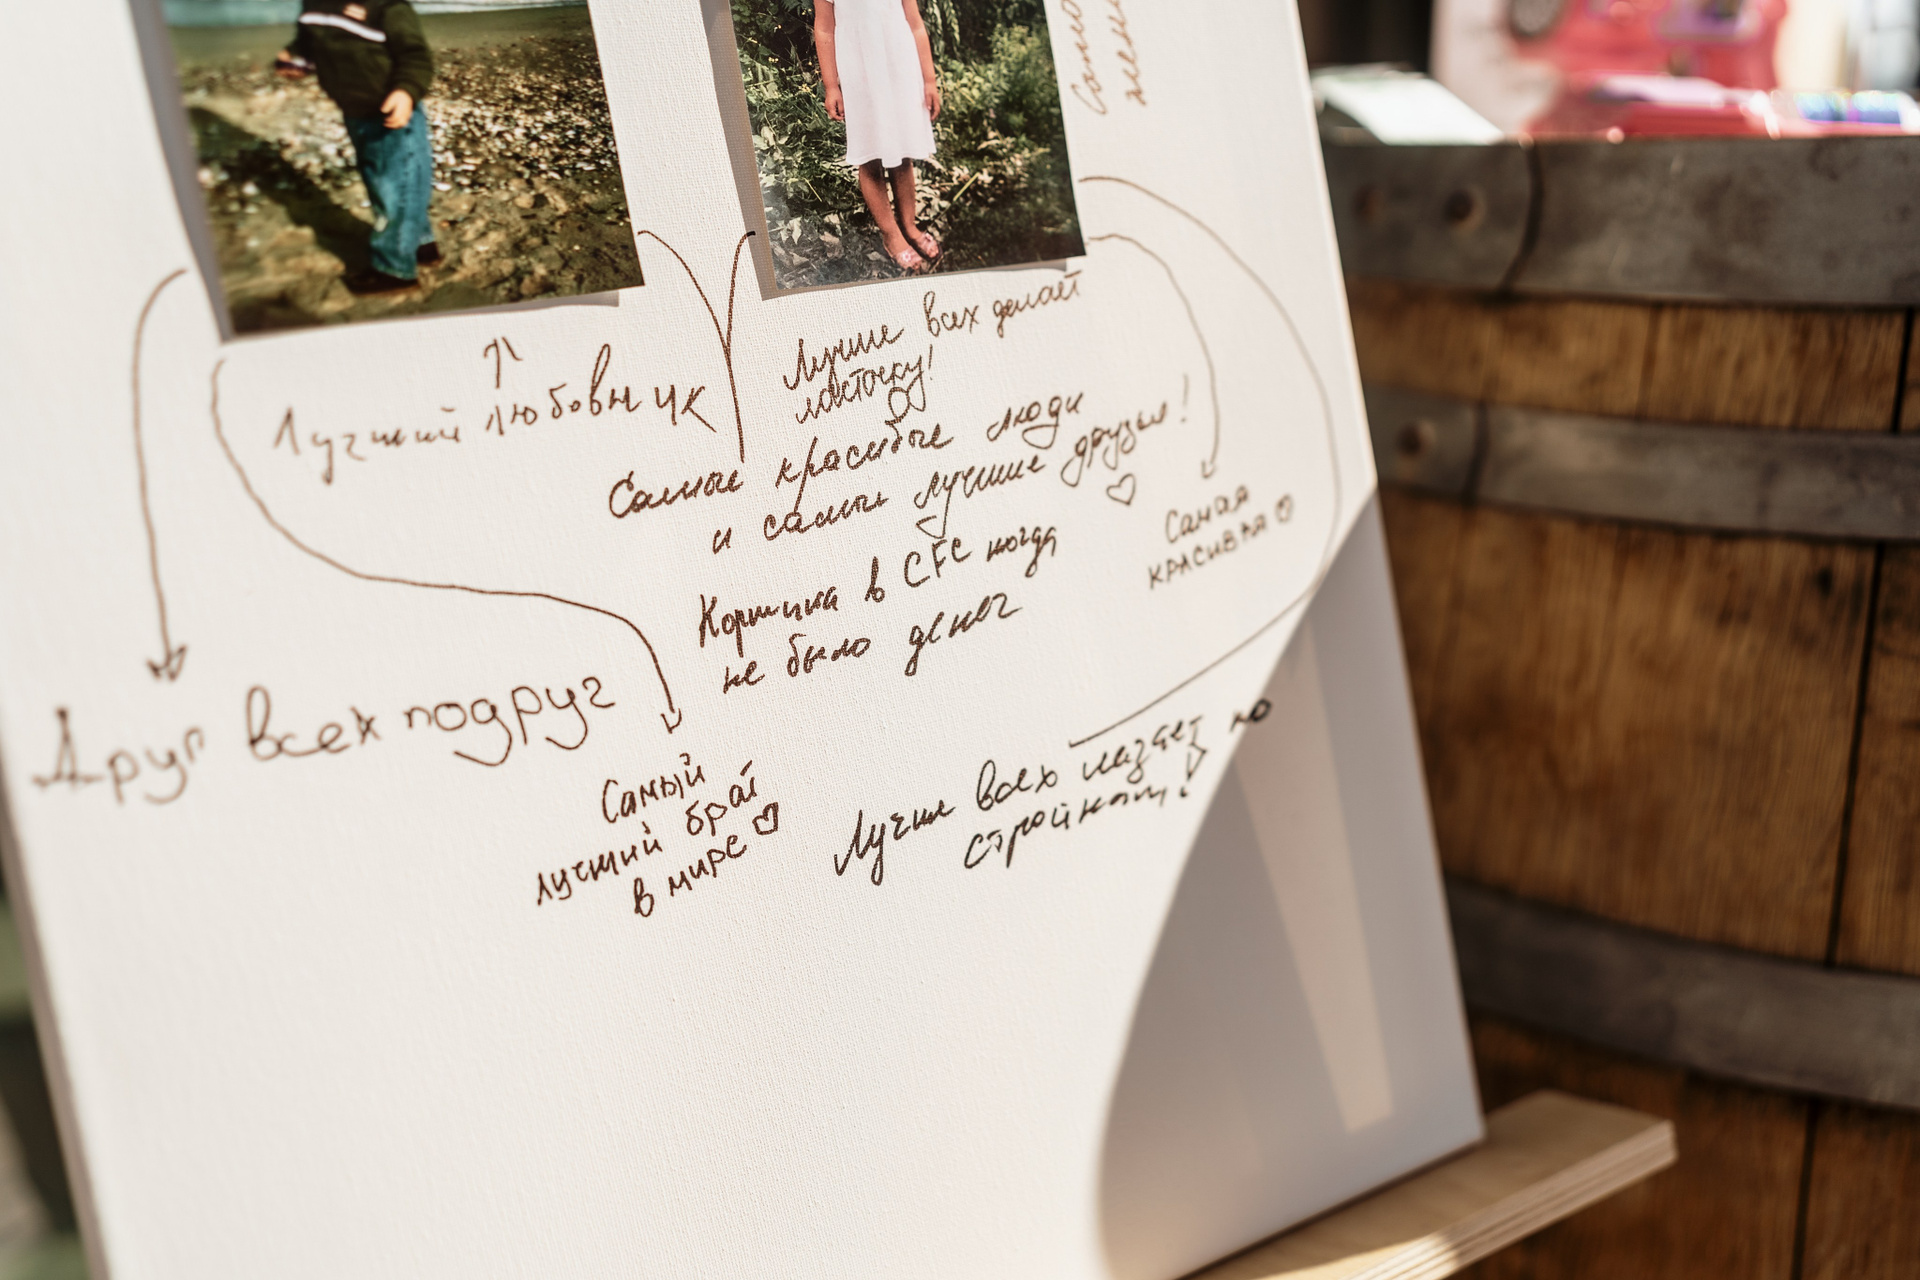 Лучший любовник
Лучше всех делает
ласточку!
Самые красивые люди
и самые лучшие друзья!
Самая
красивая
Кормила в CFC когда
не было денег
Друг всех подруг
Самый
лучший брат
в мире
Лучше всех лазает по
стройкам!